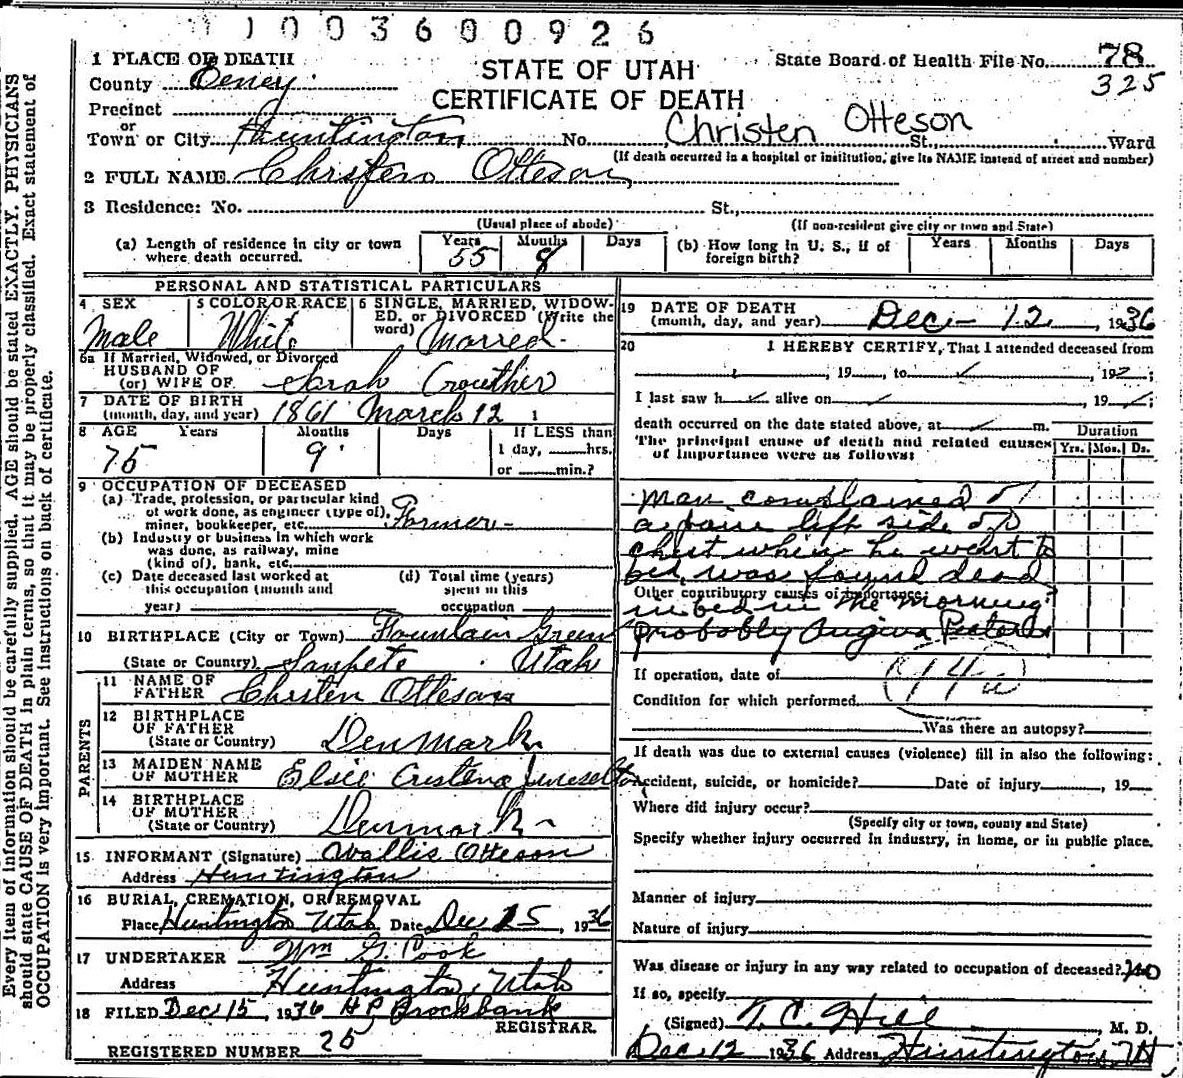 1003600926
1 PLACE OF DEATH
STATE OF UTAH
State Board of Health File No. 78
325
County Emery
CERTIFICATE OF DEATH
Precinct
or
Town or City Huntington No. Christen Otteson St., Ward
(If death occurred in a hospital or institution, give its NAME instead of street and number)
2 FULL NAME Otteson
3 Residence: No. St.,
(Usual place of abode) (If non-resident give city or town and State)
(a) Length of residence in city or town where death occurred. Years 55 Months 8 Days
(b) How long in U. S., if of foreign birth? Years Months Days
PERSONAL AND STATISTICAL PARTICULARS
4 SEX 5 COLOR OR RACE 6 SINGLE, MARRIED, WIDOWED, or DIVORCED (Write the word)
Male White Married
6a If Married, Widowed, or Divorced
HUSBAND OF
(or) WIFE OF Sarah Crowther
7 DATE OF BIRTH
(month, day, and year) 1861 March 12
8 AGE Years Months Days If LESS than
75 9 1 day, hrs.
or min.?
9 OCCUPATION OF DECEASED
(a) Trade, profession, or particular kind
of work done, as engineer (type of),
miner, bookkeeper, etc. Farmer
(b) Industry or business in which work
was done, as railway, mine
(kind of), bank, etc.
(c) Date deceased last worked at
this occupation (month and
year)
(d) Total time (years)
spent in this
occupation
10 BIRTHPLACE (City or Town) Fountain Green
(State or Country) Sanpete Utah
PARENTS
11 NAME OF
FATHER Christen Otteson
12 BIRTHPLACE
OF FATHER
(State or Country) Denmark
13 MAIDEN NAME
OF MOTHER Elsie
14 BIRTHPLACE
OF MOTHER
(State or Country) Denmark
15 INFORMANT (Signature) Wallis Otteson
Address Huntington
16 BURIAL, CREMATION, OR REMOVAL
Place Huntington Utah Date Dec 15, 1936
17 UNDERTAKER Wm G. Cook
Address Huntington, Utah
18 FILED Dec 15, 1936 H P Brockbank
REGISTRAR.
REGISTERED NUMBER 25
19 DATE OF DEATH
(month, day, and year) Dec - 12, 1936
20 I HEREBY CERTIFY, That I attended deceased from
, 19 , to , 192 ;
I last saw h alive on , 19 ;
death occurred on the date stated above, at m.
The principal cause of death and related causes
of importance were as follows:
Duration
Yrs. Mos. Ds.
Man complained of
a pain left side of
chest when he went to
bed, was found dead
Other contributory causes of importance:
in bed in the morning
probably Angina Pectoris
If operation, date of
Condition for which performed
94a
Was there an autopsy?
If death was due to external causes (violence) fill in also the following:
Accident, suicide, or homicide? Date of injury , 19
Where did injury occur?
(Specify city or town, county and State)
Specify whether injury occurred in industry, in home, or in public place.
Manner of injury
Nature of injury
Was disease or injury in any way related to occupation of deceased? No
If so, specify
(Signed) T. C. Hill, M. D.
Dec 12 1936 Address Huntington, Ut.
Every item of information should be carefully supplied. AGE should be stated EXACTLY. PHYSICIANS
should state CAUSE OF DEATH in plain terms, so that it may be properly classified. Exact statement of
OCCUPATION is very important. See instructions on back of certificate.